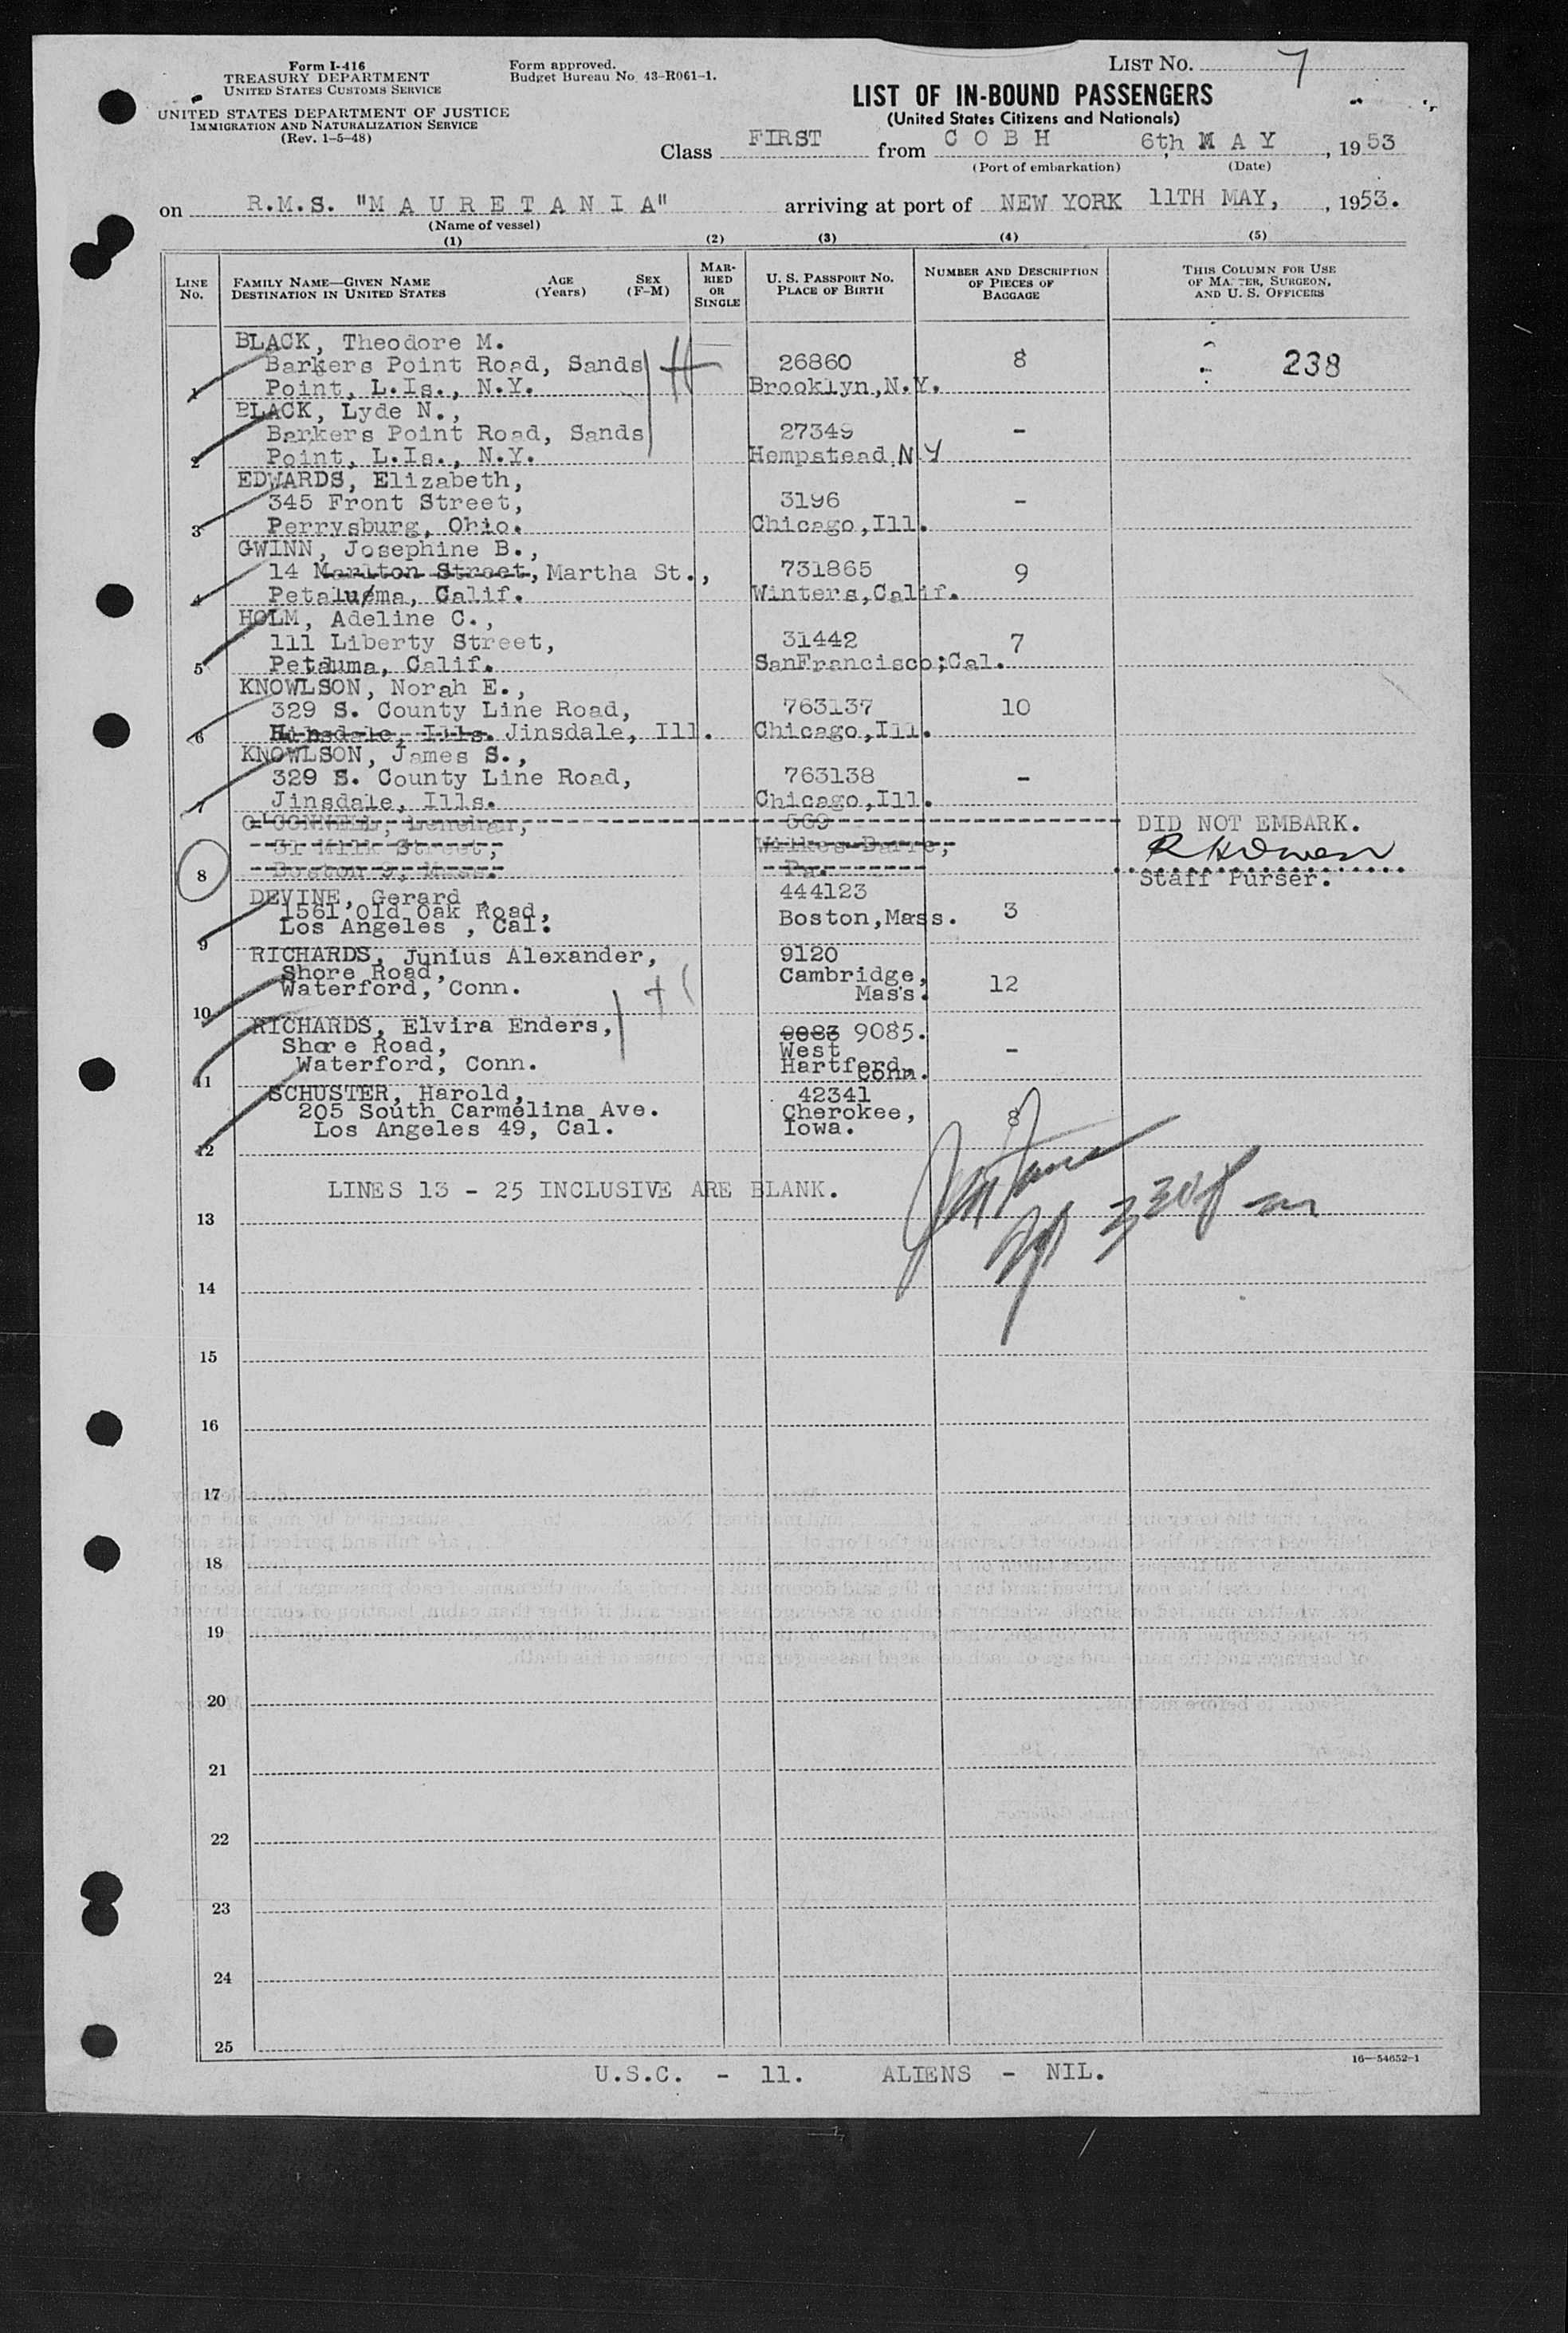 Form I-416
TREASURY DEPARTMENT
UNITED STATES CUSTOMS SERVICE
UNITED STATES DEPARTMENT OF JUSTICE
IMMIGRATION AND NATURALIZATION SERVICE
(Rev. 1-5-48)
Form approved.
Budget Bureau No. 43-R061-1.
LIST NO. 7
LIST OF IN-BOUND PASSENGERS
(United States Citizens and Nationals)
Class FIRST from COBH 6th MAY, 1953
(Port of embarkation) (Date)
on R.M.S. "MAURETANIA" arriving at port of NEW YORK 11TH MAY, , 1953.
(Name of vessel)
(1) (2) (3) (4) (5)
LINE NO.
FAMILY NAME—GIVEN NAME
DESTINATION IN UNITED STATES
AGE (Years)
SEX (F-M)
MARRIED OR SINGLE
U. S. PASSPORT NO.
PLACE OF BIRTH
NUMBER AND DESCRIPTION
OF PIECES OF
BAGGAGE
THIS COLUMN FOR USE
OF MASTER, SURGEON,
AND U. S. OFFICERS
BLACK, Theodore M.
Barkers Point Road, Sands 26860 8 238
1 Point, L.Is., N.Y. Brooklyn,N.Y.
BLACK, Lyde N.,
Barkers Point Road, Sands 27349 -
2 Point, L.Is., N.Y. Hempstead, NY
EDWARDS, Elizabeth,
345 Front Street, 3196 -
3 Perrysburg, Ohio. Chicago,Ill.
GWINN, Josephine B.,
14 Marlton Street, Martha St., 731865 9
4 Petaluma, Calif. Winters,Calif.
HOLM, Adeline C.,
111 Liberty Street, 31442 7
5 Petauma, Calif. SanFrancisco;Cal.
KNOWLSON, Norah E.,
329 S. County Line Road, 763137 10
6 Hinsdale, Ills. Jinsdale, Ill. Chicago,Ill.
KNOWLSON, James S.,
329 S. County Line Road, 763138 -
7 Jinsdale, Ills. Chicago,Ill.
O'CONNELL, Lenehan, 569 DID NOT EMBARK.
31 Milk Street, Wilkes-Barre, R H Owen
8 Boston 9, Mass. Pa. Staff Purser.
DEVINE, Gerard , 444123
1561 Old Oak Road, Boston,Mass. 3
9 Los Angeles , Cal.
RICHARDS, Junius Alexander, 9120
Shore Road, Cambridge, 12
10 Waterford, Conn. Mass.
RICHARDS, Elvira Enders, 9083 9085.
Shore Road, West -
11 Waterford, Conn. Hartford, Conn.
SCHUSTER, Harold, 42341
205 South Carmelina Ave. Cherokee, 8
12 Los Angeles 49, Cal. Iowa.
LINES 13 - 25 INCLUSIVE ARE BLANK.
13
14
15
16
17
18
19
20
21
22
23
24
25
16—54652-1
U.S.C. - 11. ALIENS - NIL.